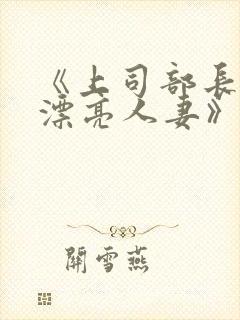 《上司部長
漂亮人妻》
關雪燕